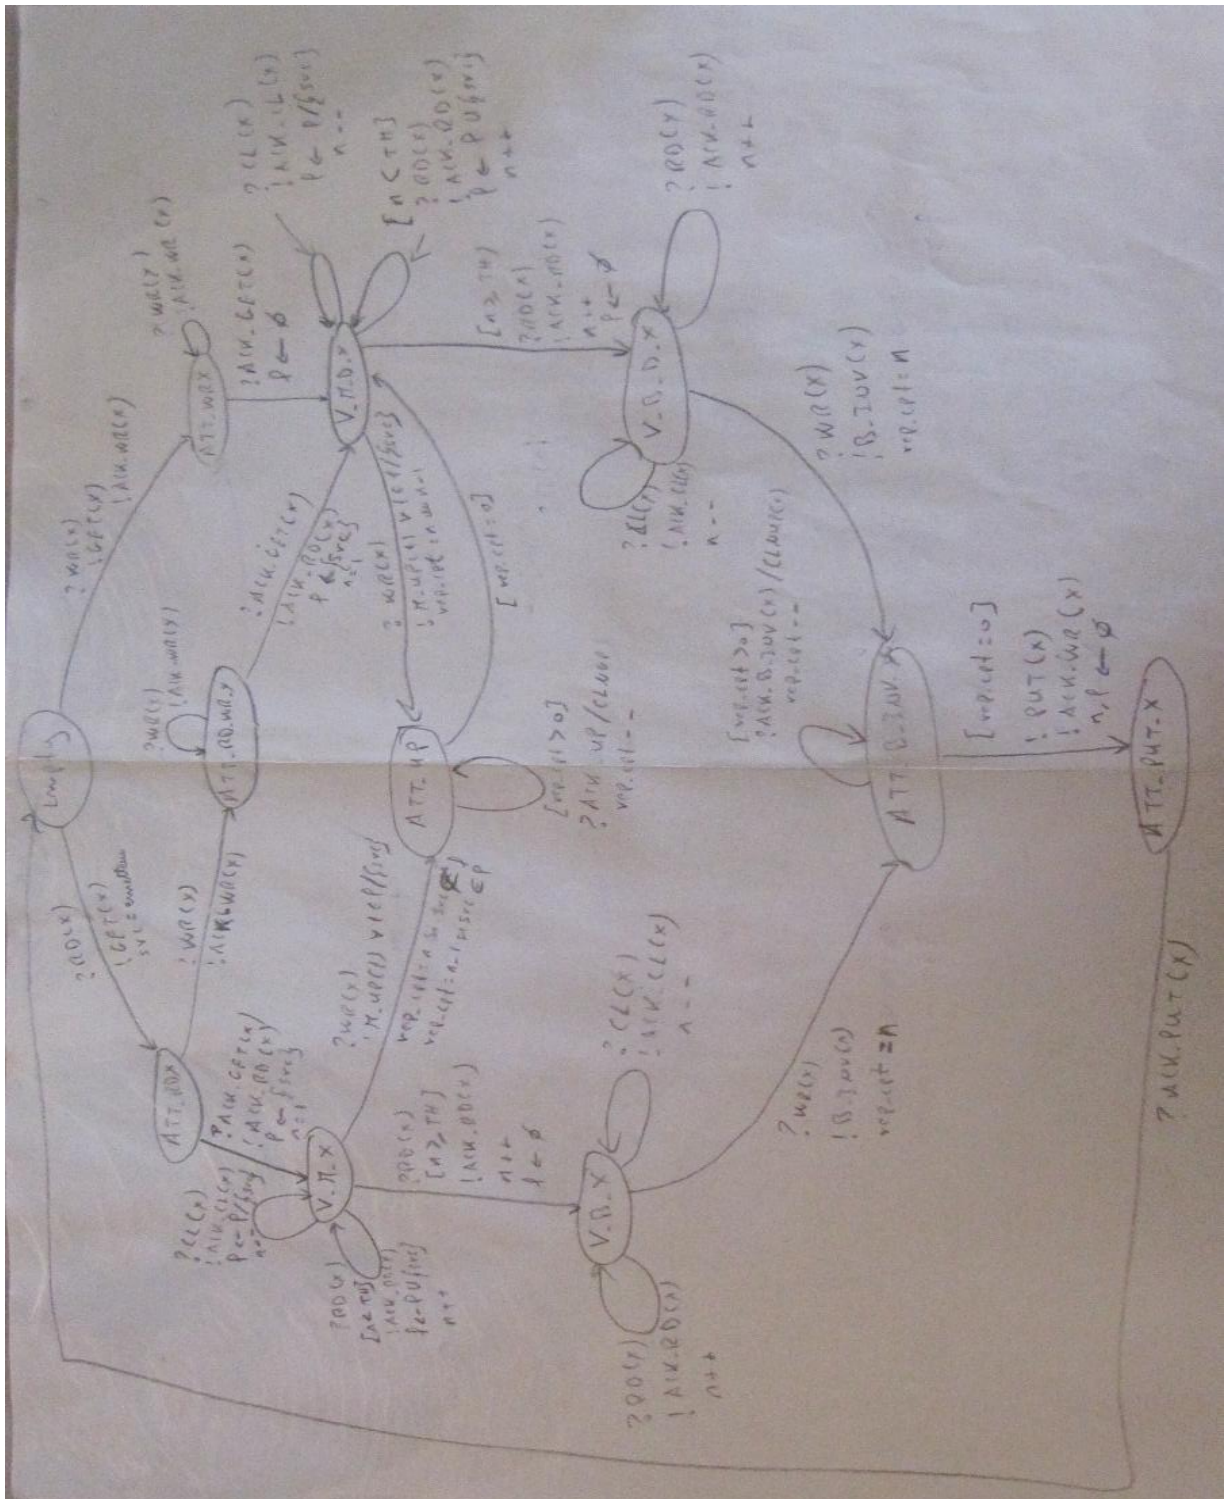 Empty
?RD(X)
!GET(X)
?WR(X)
!GET(X)
!ACK.WR(X)
ATT_RDX
?WR(X)
ATT_RD_WR_X
?WR(X)
!ACK.WR(X)
ATT_WRX
?WR(X)
!ACK.WR(X)
?ACK_GET(X)
P ← ∅
?ACK.GET(X)
!ACK_RD(X)
P ← {src}
n=1
?ACK.GET(X)
!ACK_RD(X)
P ← {src}
n=1
V_M_X
?CL(X)
!ACK_CL(X)
P ← P/{src}
n--
?RD(X)
[n<TH]
!ACK_RD(X)
P ← P U {src}
n++
V_M_D_X
?CL(X)
!ACK_CL(X)
P ← P/{src}
n--
[n < TH]
?RD(X)
!ACK_RD(X)
P ← P U {src}
n++
?WR(X)
!M_UP(X) ∀ i ∈ P/{src}
ATT_UP
?WR(X)
[rep_cpt=0]
[rep_cpt>0]
?ACK_UP/CLNUP
rep_cpt--
?RD(X)
[n ≥ TH]
!ACK_RD(X)
n++
P ← ∅
[n ≥ TH]
?RD(X)
!ACK_RD(X)
n++
P ← ∅
V_B_X
?CL(X)
!ACK_CL(X)
n--
?RD(X)
!ACK_RD(X)
n++
V_B_D_X
?RD(X)
!ACK_RD(X)
n++
?CL(X)
!ACK_CL(X)
n--
?WR(X)
!B_INV(X)
rep_cpt=n
?WR(X)
!B_INV(X)
rep_cpt=n
ATT_B_INV_X
[rep_cpt>0]
?ACK_B_INV(X)/CLNUP(X)
rep_cpt--
[rep_cpt=0]
!PUT(X)
!ACK.WR(X)
n,P ← ∅
ATT_PUT_X
?ACK.PUT(X)